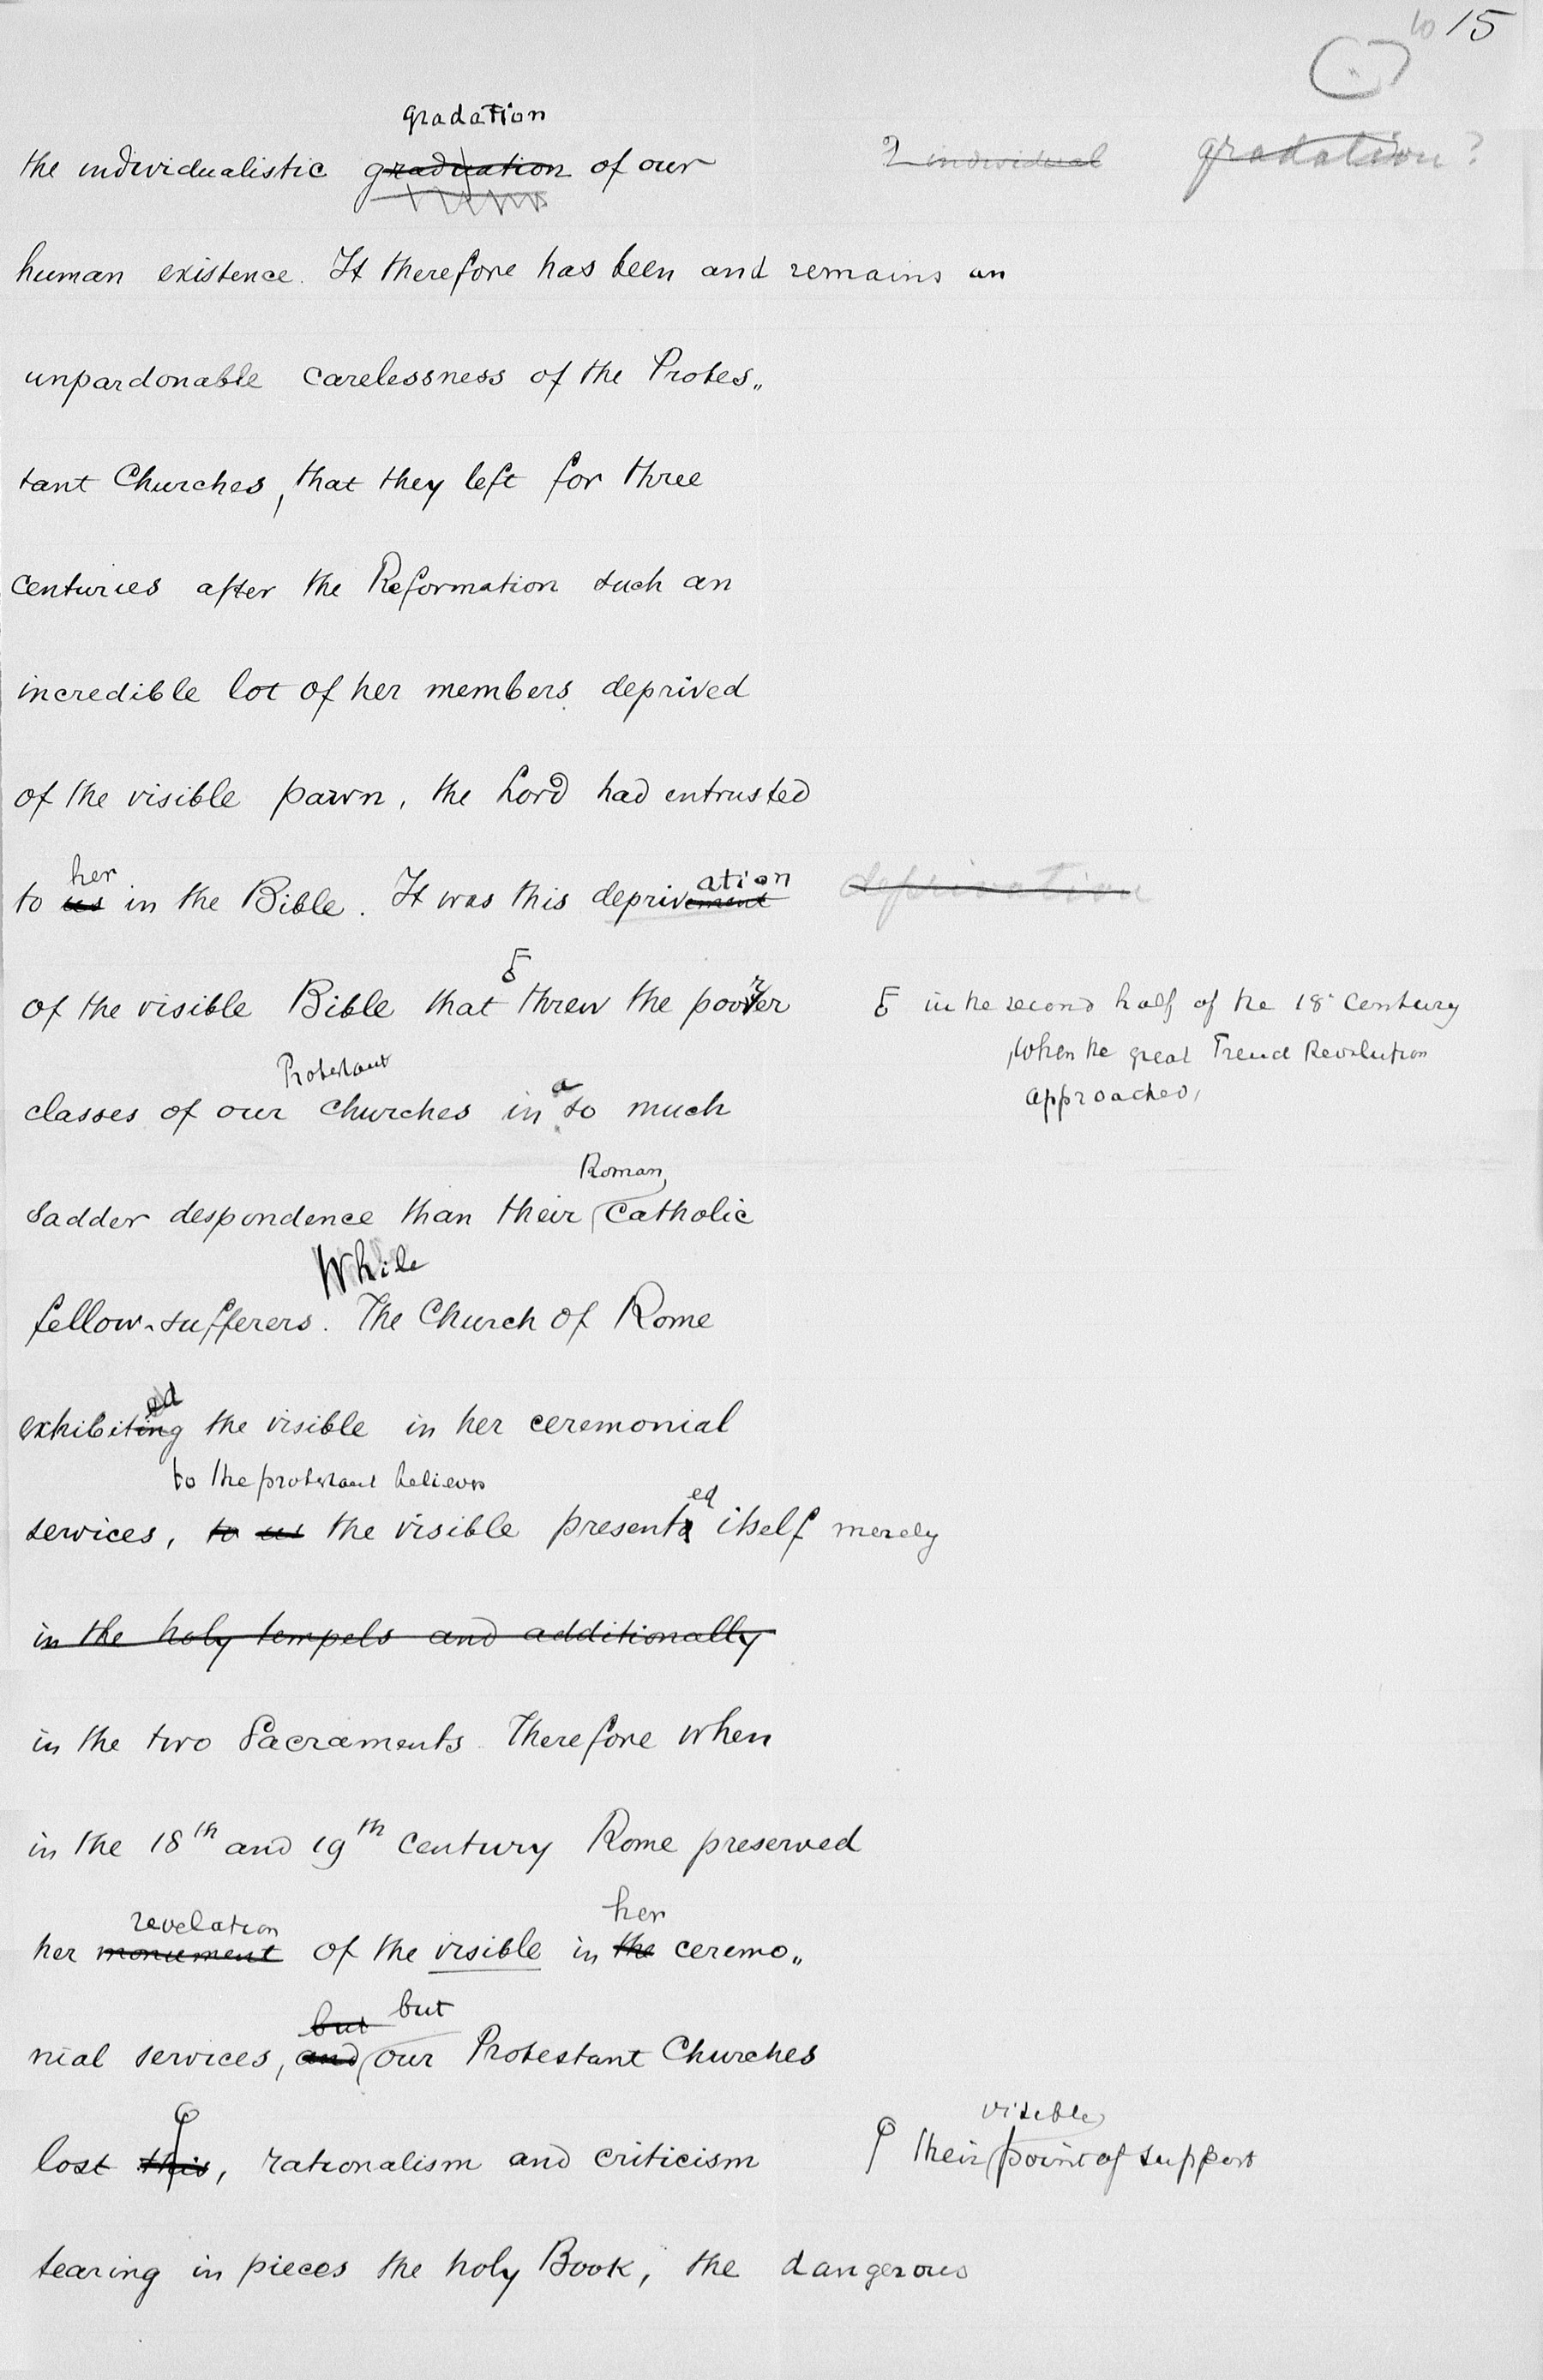 15
gradation
the individualistic graduation of our
individual gradation?
human existence. It therefore has been and remains an
unpardonable carelessness of the Protes„
tant Churches, that they left for three
centuries after the Reformation such an
incredible lot of her members deprived
of the visible pawn, the Lord had entrusted
her ation
to us in the Bible. It was this deprivement
deprivation
of the visible Bible that threw the poorer
in the second half of the 18 Century
, when the great French Revolution
approached,
Protestant a
classes of our Churches in so much
Roman
sadder despondence than their Catholic
While
fellow-sufferers. The Church of Rome
ed
exhibiting the visible in her ceremonial
to the protestant believers ed
services, to us the visible presents itself merely
in the holy tempels and additionally
in the two Sacraments. Therefore when
in the 18th and 19th century Rome preserved
revelation her
her monument of the visible in the ceremo„
but but
nial services, and our Protestant Churches
visible
lost this, rationalism and criticism
their point of support
tearing in pieces the holy Book, the dangerous